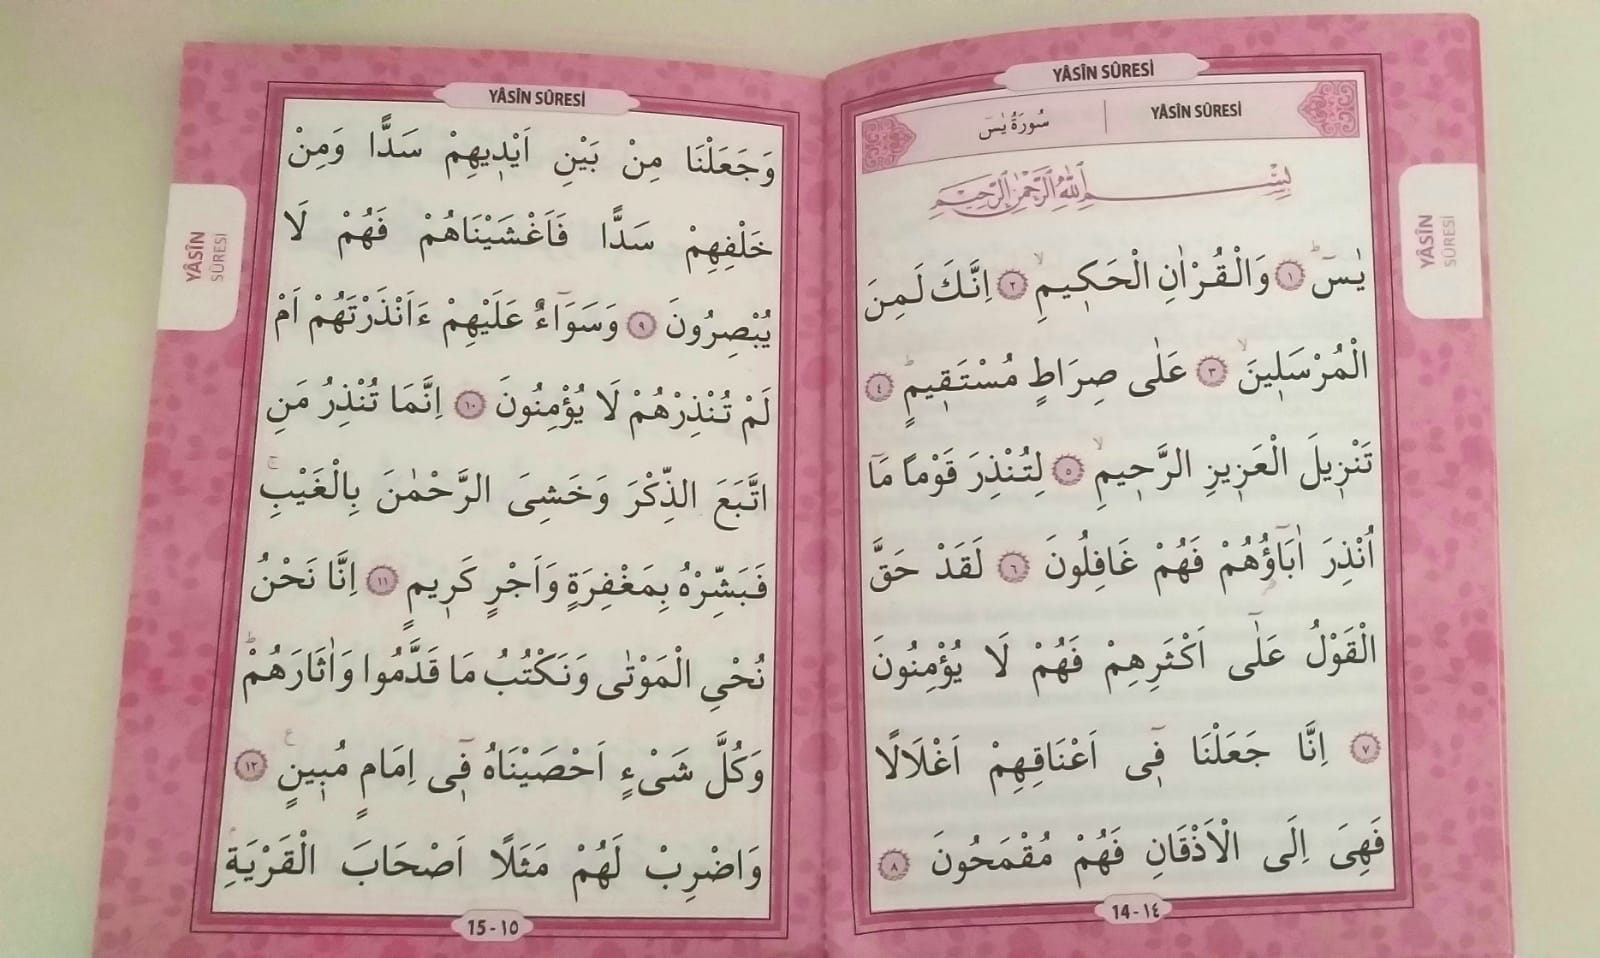 YÂSÎN SÛRESİ
سُورَةُ يٰسٓ
YÂSÎN SÛRESİ
بِسْمِ اللّٰهِ الرَّحْمٰنِ الرَّحِيمِ
يٰسٓ ﴿١﴾ وَالْقُرْاٰنِ الْحَكٖيمِ ﴿٢﴾ اِنَّكَ لَمِنَ
الْمُرْسَلٖينَ ﴿٣﴾ عَلٰى صِرَاطٍ مُسْتَقٖيمٍ ﴿٤﴾
تَنْزٖيلَ الْعَزٖيزِ الرَّحٖيمِ ﴿٥﴾ لِتُنْذِرَ قَوْمًا مَٓا
اُنْذِرَ اٰبَٓاؤُهُمْ فَهُمْ غَافِلُونَ ﴿٦﴾ لَقَدْ حَقَّ
الْقَوْلُ عَلٰٓى اَكْثَرِهِمْ فَهُمْ لَا يُؤْمِنُونَ
﴿٧﴾ اِنَّا جَعَلْنَا فٖٓى اَعْنَاقِهِمْ اَغْلَالًا
فَهِىَ اِلَى الْاَذْقَانِ فَهُمْ مُقْمَحُونَ ﴿٨﴾
14-١٤
YÂSÎN
SÛRESİ
YÂSÎN SÛRESİ
وَجَعَلْنَا مِنْ بَيْنِ اَيْدٖيهِمْ سَدًّا وَمِنْ
خَلْفِهِمْ سَدًّا فَاَغْشَيْنَاهُمْ فَهُمْ لَا
يُبْصِرُونَ ﴿٩﴾ وَسَوَٓاءٌ عَلَيْهِمْ ءَاَنْذَرْتَهُمْ اَمْ
لَمْ تُنْذِرْهُمْ لَا يُؤْمِنُونَ ﴿١٠﴾ اِنَّمَا تُنْذِرُ مَنِ
اتَّبَعَ الذِّكْرَ وَخَشِىَ الرَّحْمٰنَ بِالْغَيْبِۚ
فَبَشِّرْهُ بِمَغْفِرَةٍ وَاَجْرٍ كَرٖيمٍ ﴿١١﴾ اِنَّا نَحْنُ
نُحْيِ الْمَوْتٰى وَنَكْتُبُ مَا قَدَّمُوا وَاٰثَارَهُمْؕ
وَكُلَّ شَىْءٍ اَحْصَيْنَاهُ فٖٓى اِمَامٍ مُبٖينٍ ﴿١٢﴾
وَاضْرِبْ لَهُمْ مَثَلًا اَصْحَابَ الْقَرْيَةِ
15-١٥
YÂSÎN
SÛRESİ